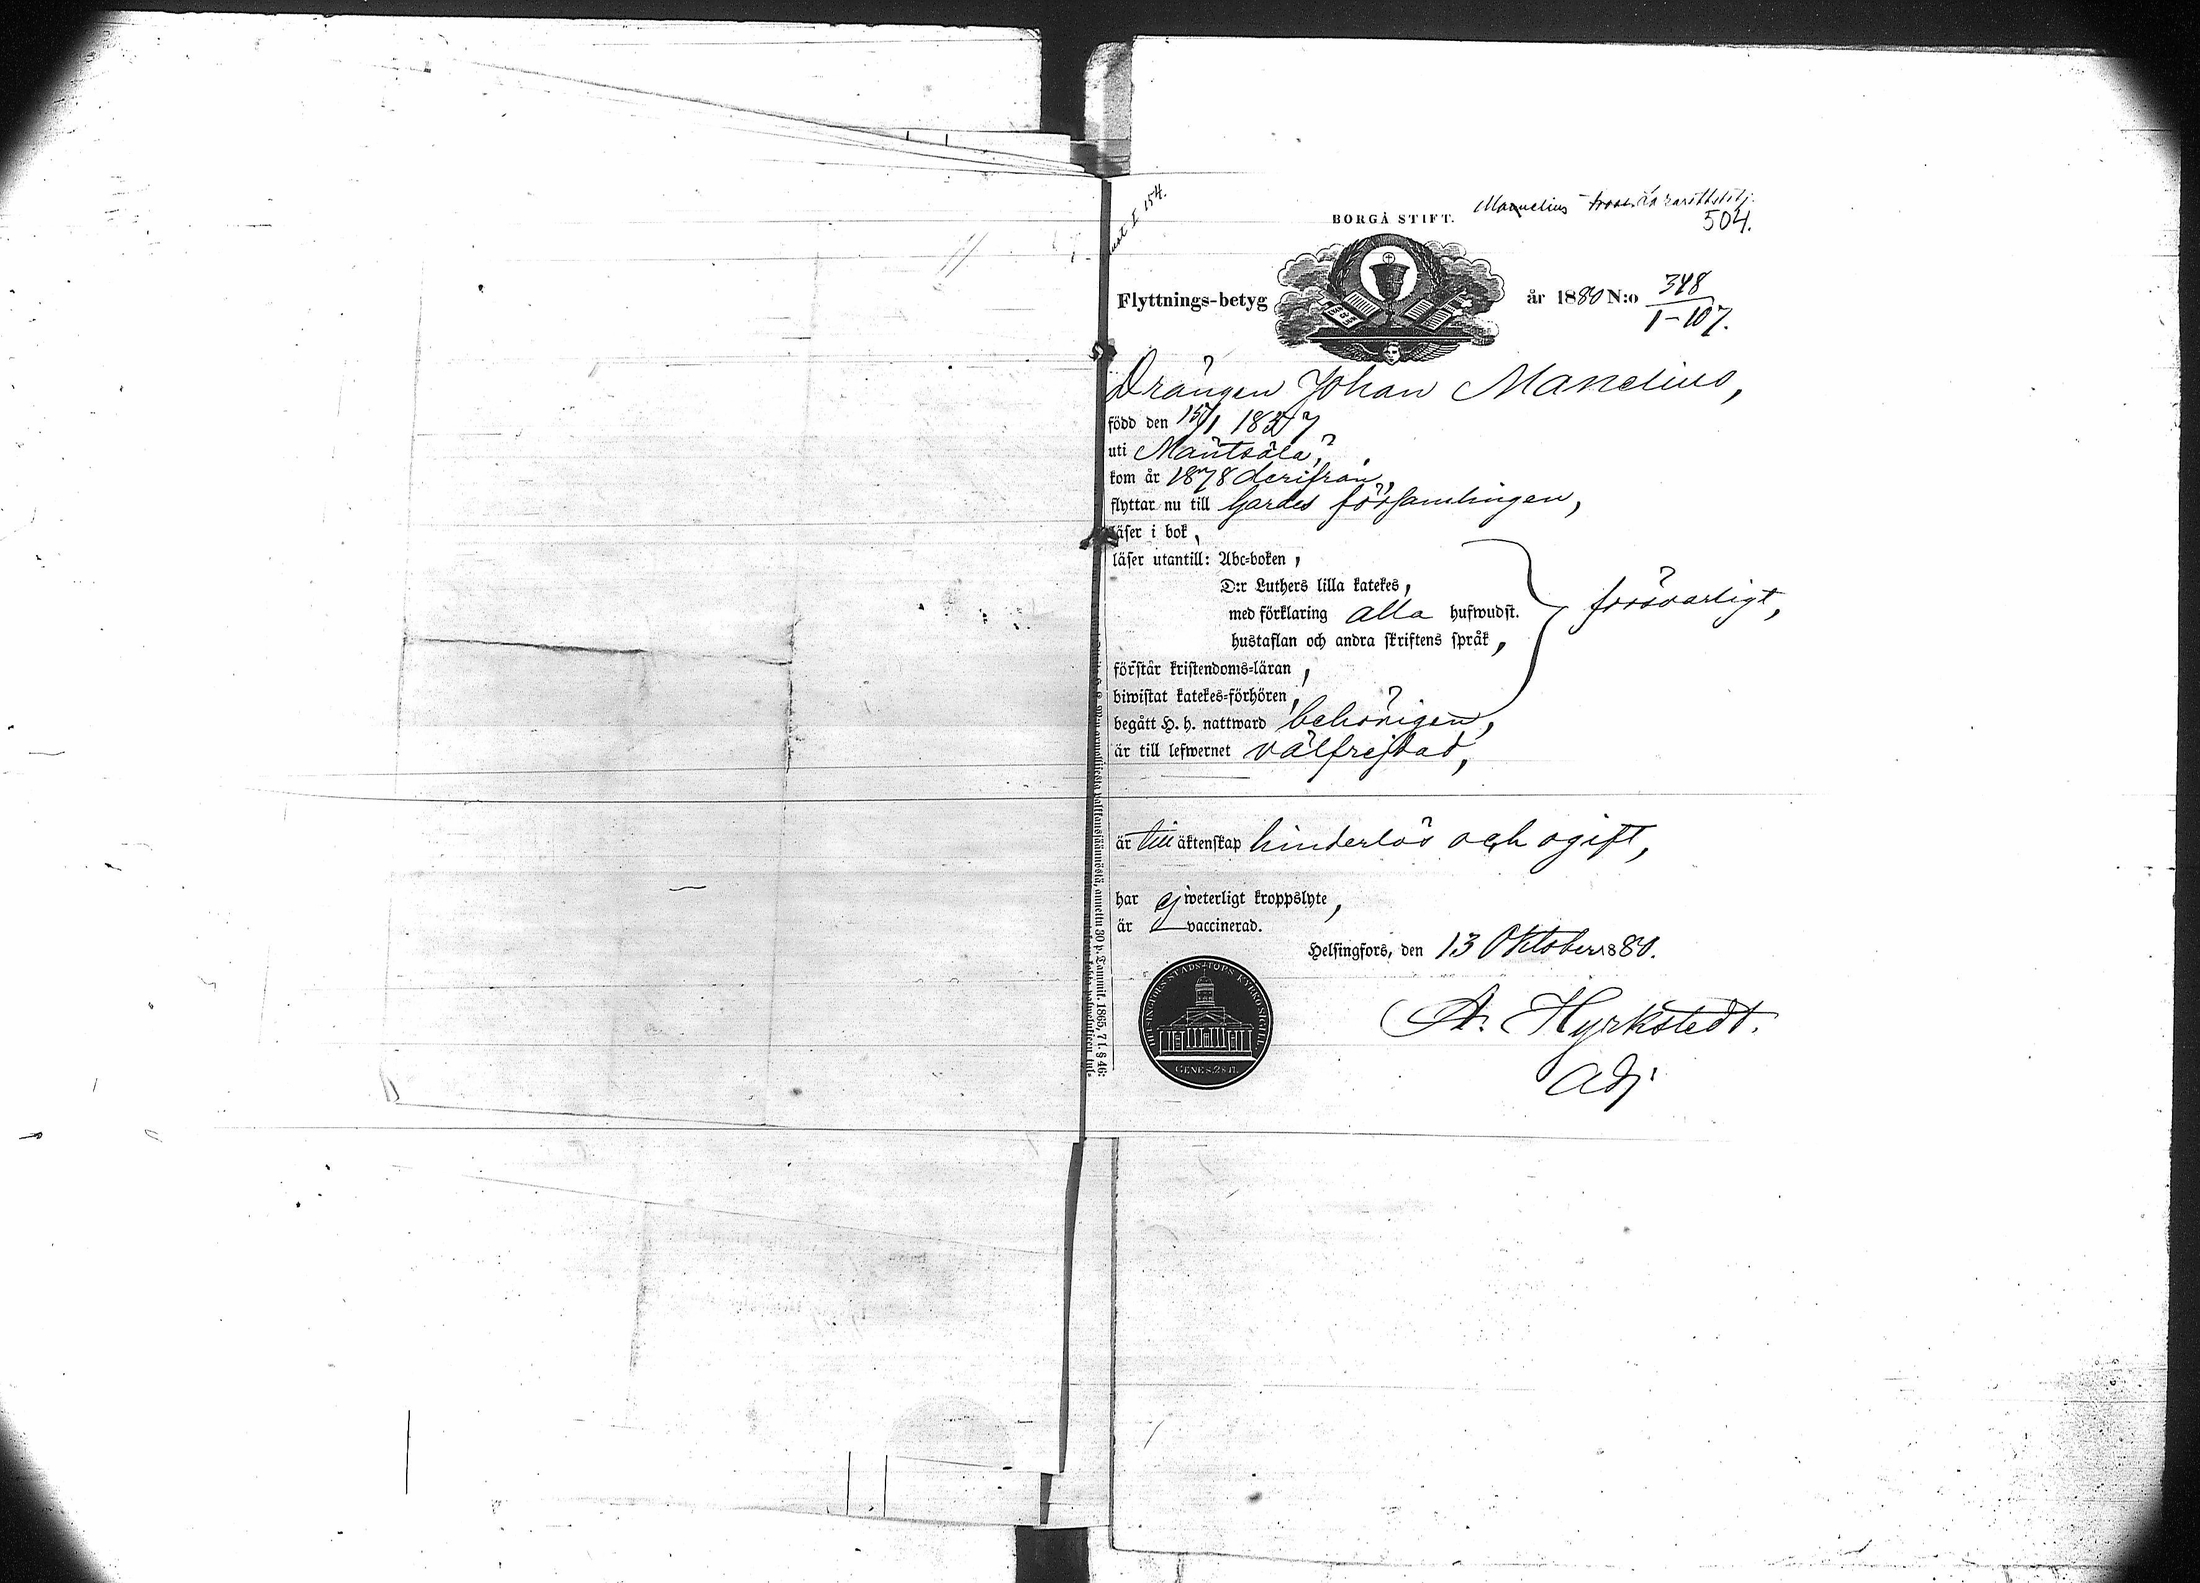 I 154.
BORGÅ STIFT. Manelius
504.
Flyttnings-betyg år 1880 N:o 348
1-107.
Drängen Johan Manelius,
född den 15/1 1857
uti Mäntsälä,
kom år 1878 derifrån,
flyttar nu till Gardes församlingen,
läser i bok,
läser utantill: Abc-boken,
D:r Luthers lilla katekes,
med förklaring alla hufwudst. försvarligt,
hustaflan och andra skriftens språk,
förstår kristendoms-läran,
biwistat katekes-förhören,
begått H. h. nattward behörigen,
är till lefwernet välfrejdad,
är till äktenskap hinderlös och ogift,
har ej weterligt kroppslyte,
är vaccinerad.
Helsingfors, den 13 Oktober 1880.
A. Hyrkstedt.
Adj.
HELSINGFORS STADS KYRKO SIGILL.
GENES. 28 17.
Tammik. 1865, 71. § 46: